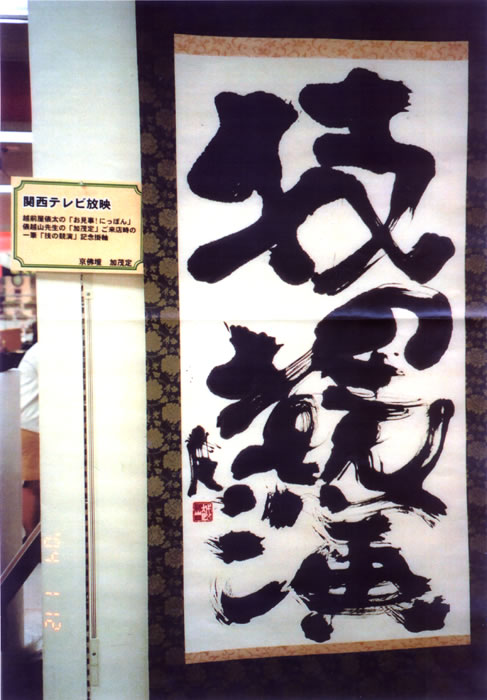 関西テレビ放映
越前屋俵太の「お見事!にっぽん」
俵越山先生の「加茂定」ご来店時の
一筆「技の競演」記念掛軸
京佛壇 加茂定
技の競演
'04 1 12